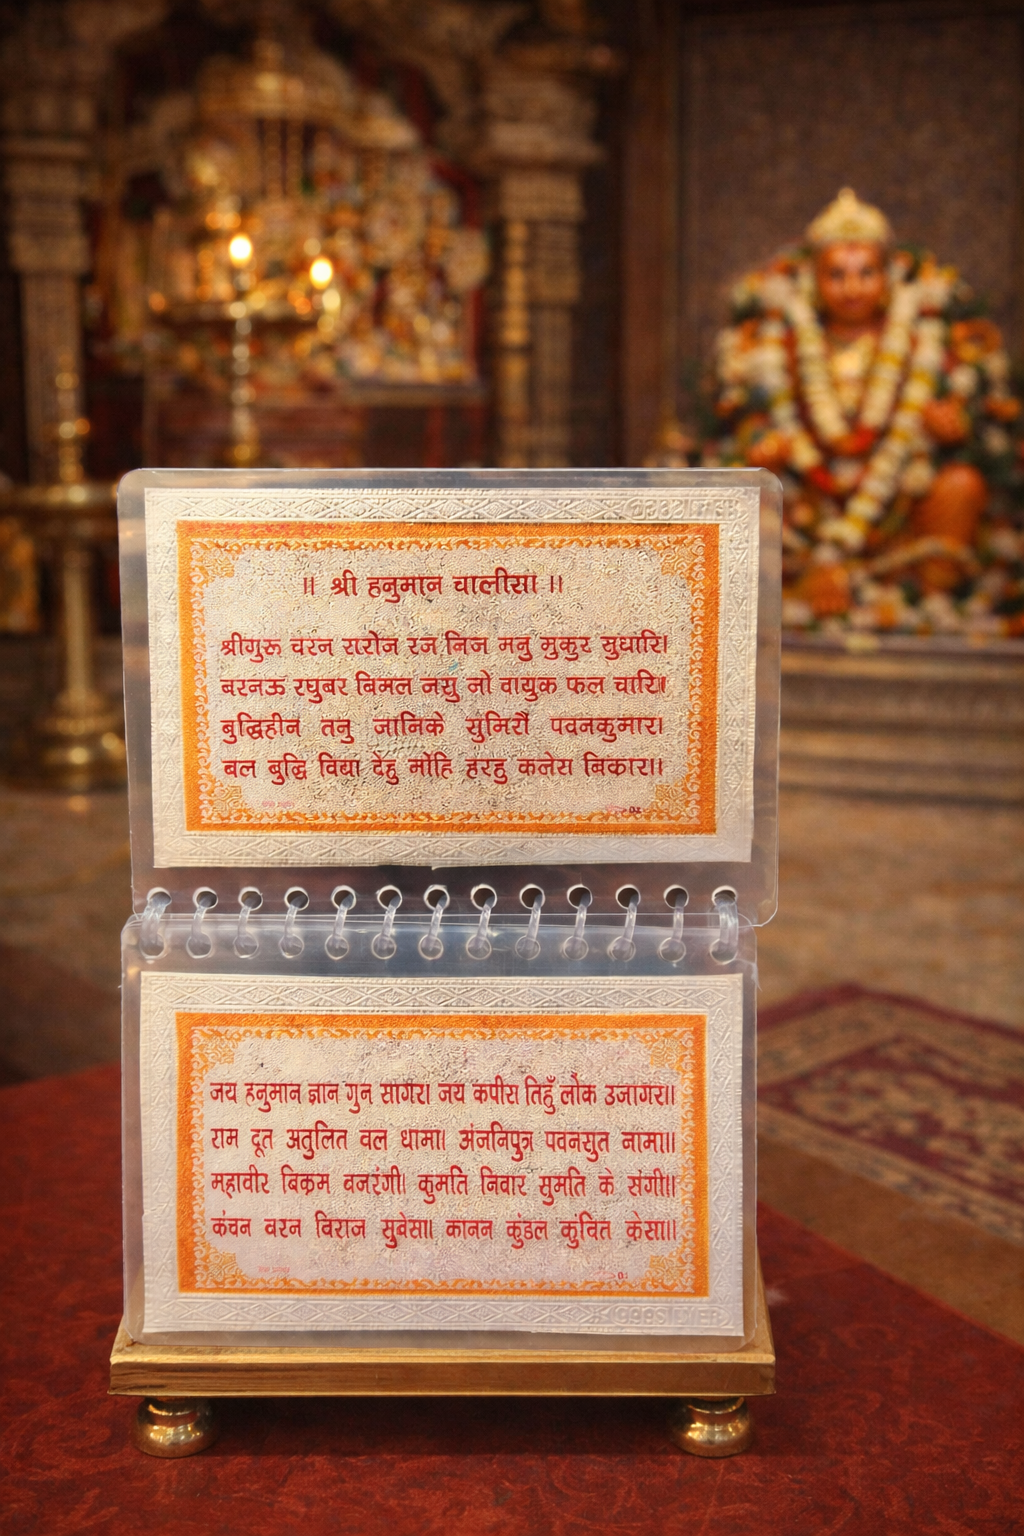 ॥ श्री हनुमान चालीसा ॥
श्रीगुरू चरन रारोज रज निज मनु मुकुर सुधारि।
बरनऊ रघुबर बिमल जसु जो वायुक फल चारि॥
बुद्धिहीन तनु जानिके सुमिरौं पवनकुमार।
बल बुद्धि विद्या देहु मोहि हरहु कलेस बिकार॥
जय हनुमान ज्ञान गुन सागर। जय कपीस तिहुँ लोक उजागर॥
राम दूत अतुलित वल धामा। अंजनिपुत्र पवनसुत नामा॥
महावीर बिक्रम वजरंगी। कुमति निवार सुमति के संगी॥
कंचन वरन विराज सुबेसा। कानन कुंडल कुंचित केसा॥
999 SILVER